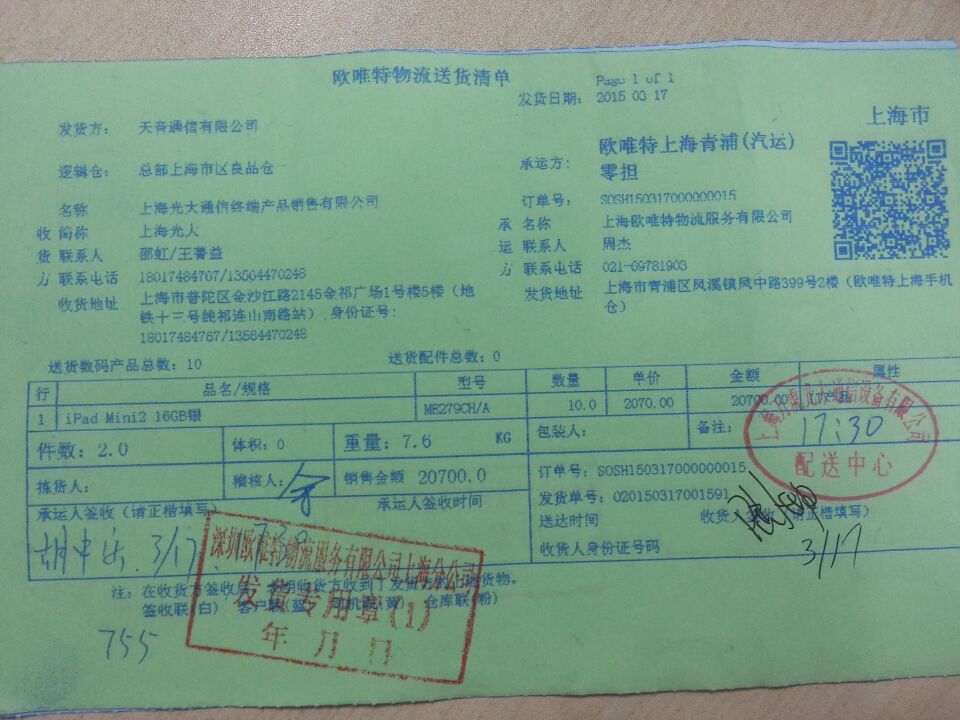 欧唯特物流送货清单
Page 1 of 1
发货日期: 2015 03 17
上海市
发货方: 天音通信有限公司
承运方: 欧唯特上海青浦(汽运)零担
逻辑仓: 总部上海市区良品仓
订单号: SOSH150317000000015
收货方
名称 上海光大通信终端产品销售有限公司
简称 上海光大
联系人 邵虹/王菁益
联系电话 18017484767/13564470248
收货地址 上海市普陀区金沙江路2145金祁广场1号楼5楼(地
铁十三号线祁连山南路站),身份证号:
18017484767/13564470248
承运方
名称 上海欧唯特物流服务有限公司
联系人 周杰
联系电话 021-69781903
发货地址 上海市青浦区凤溪镇凤中路399号2楼(欧唯特上海手机
仓)
送货数码产品总数: 10 送货配件总数: 0
行 品名/规格 型号 数量 单价 金额 属性
1 iPad Mini2 16GB银 ME279CH/A 10.0 2070.00 20700.00
件数: 2.0 体积: 0 重量: 7.6 KG 包装人: 备注:
17:30
配送中心
拣货人: 稽核人: 销售金额 20700.0 订单号: SOSH150317000000015
承运人签收(请正楷填写) 承运人签收时间 发货单号: 020150317001591
送达时间 收货人签收(请正楷填写)
收货人身份证号码
3/17
3/17
深圳欧唯特物流服务有限公司上海分公司
发货专用章(1)
年 月 日
注: 在收货方签收后,表明收货方收到了发货方的上述货物。
签收联(白) 客户联(蓝) 司机联(黄) 仓库联(粉)
755